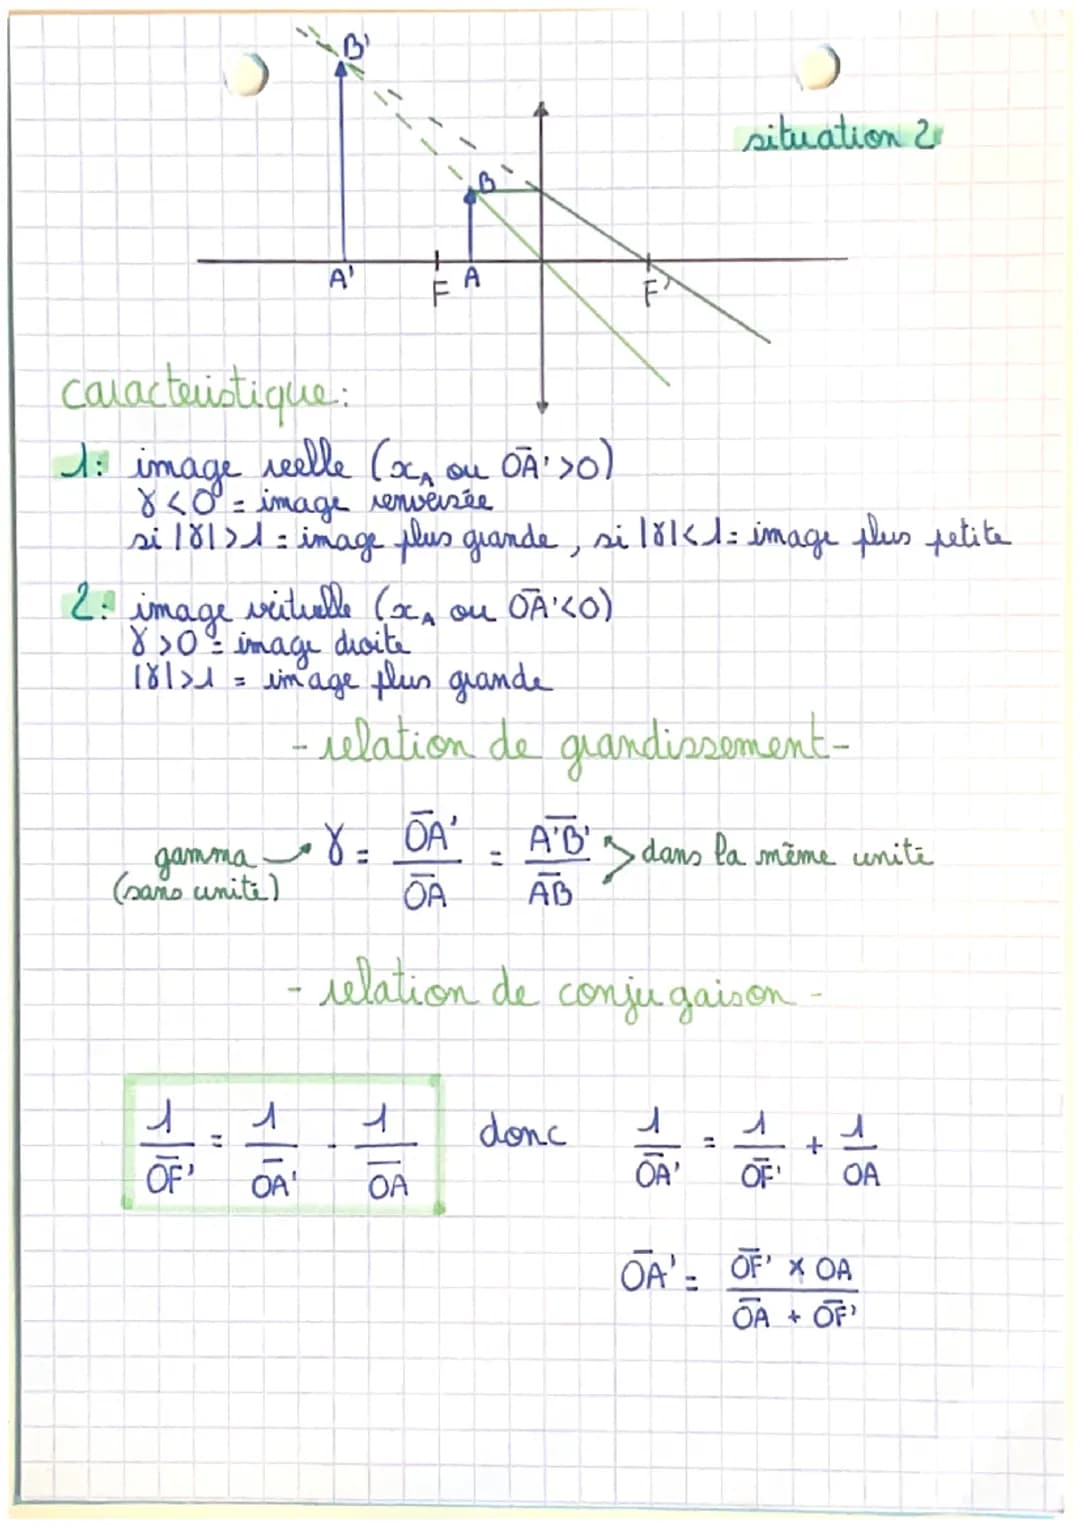 B'
situation 2
B
A'
F
A
F'
caracteristique:
1: image reelle (x_A ou O̅A̅' > 0)
γ < 0 = image renversée
si |γ| > 1 = image plus grande, si |γ| < 1 = image plus petite
2: image virtuelle (x_A ou O̅A̅' < 0)
γ > 0 = image droite
|γ| > 1 = image plus grande
- relation de grandissement -
gamma → γ = O̅A̅' / O̅A̅ = A̅'B̅' / A̅B̅ > dans la même unité
(sans unité)
- relation de conjugaison -
1/O̅F̅' = 1/O̅A̅' - 1/O̅A̅ donc 1/O̅A̅' = 1/O̅F̅' + 1/OA
O̅A̅' = O̅F̅' × OA / O̅A̅ + O̅F̅'